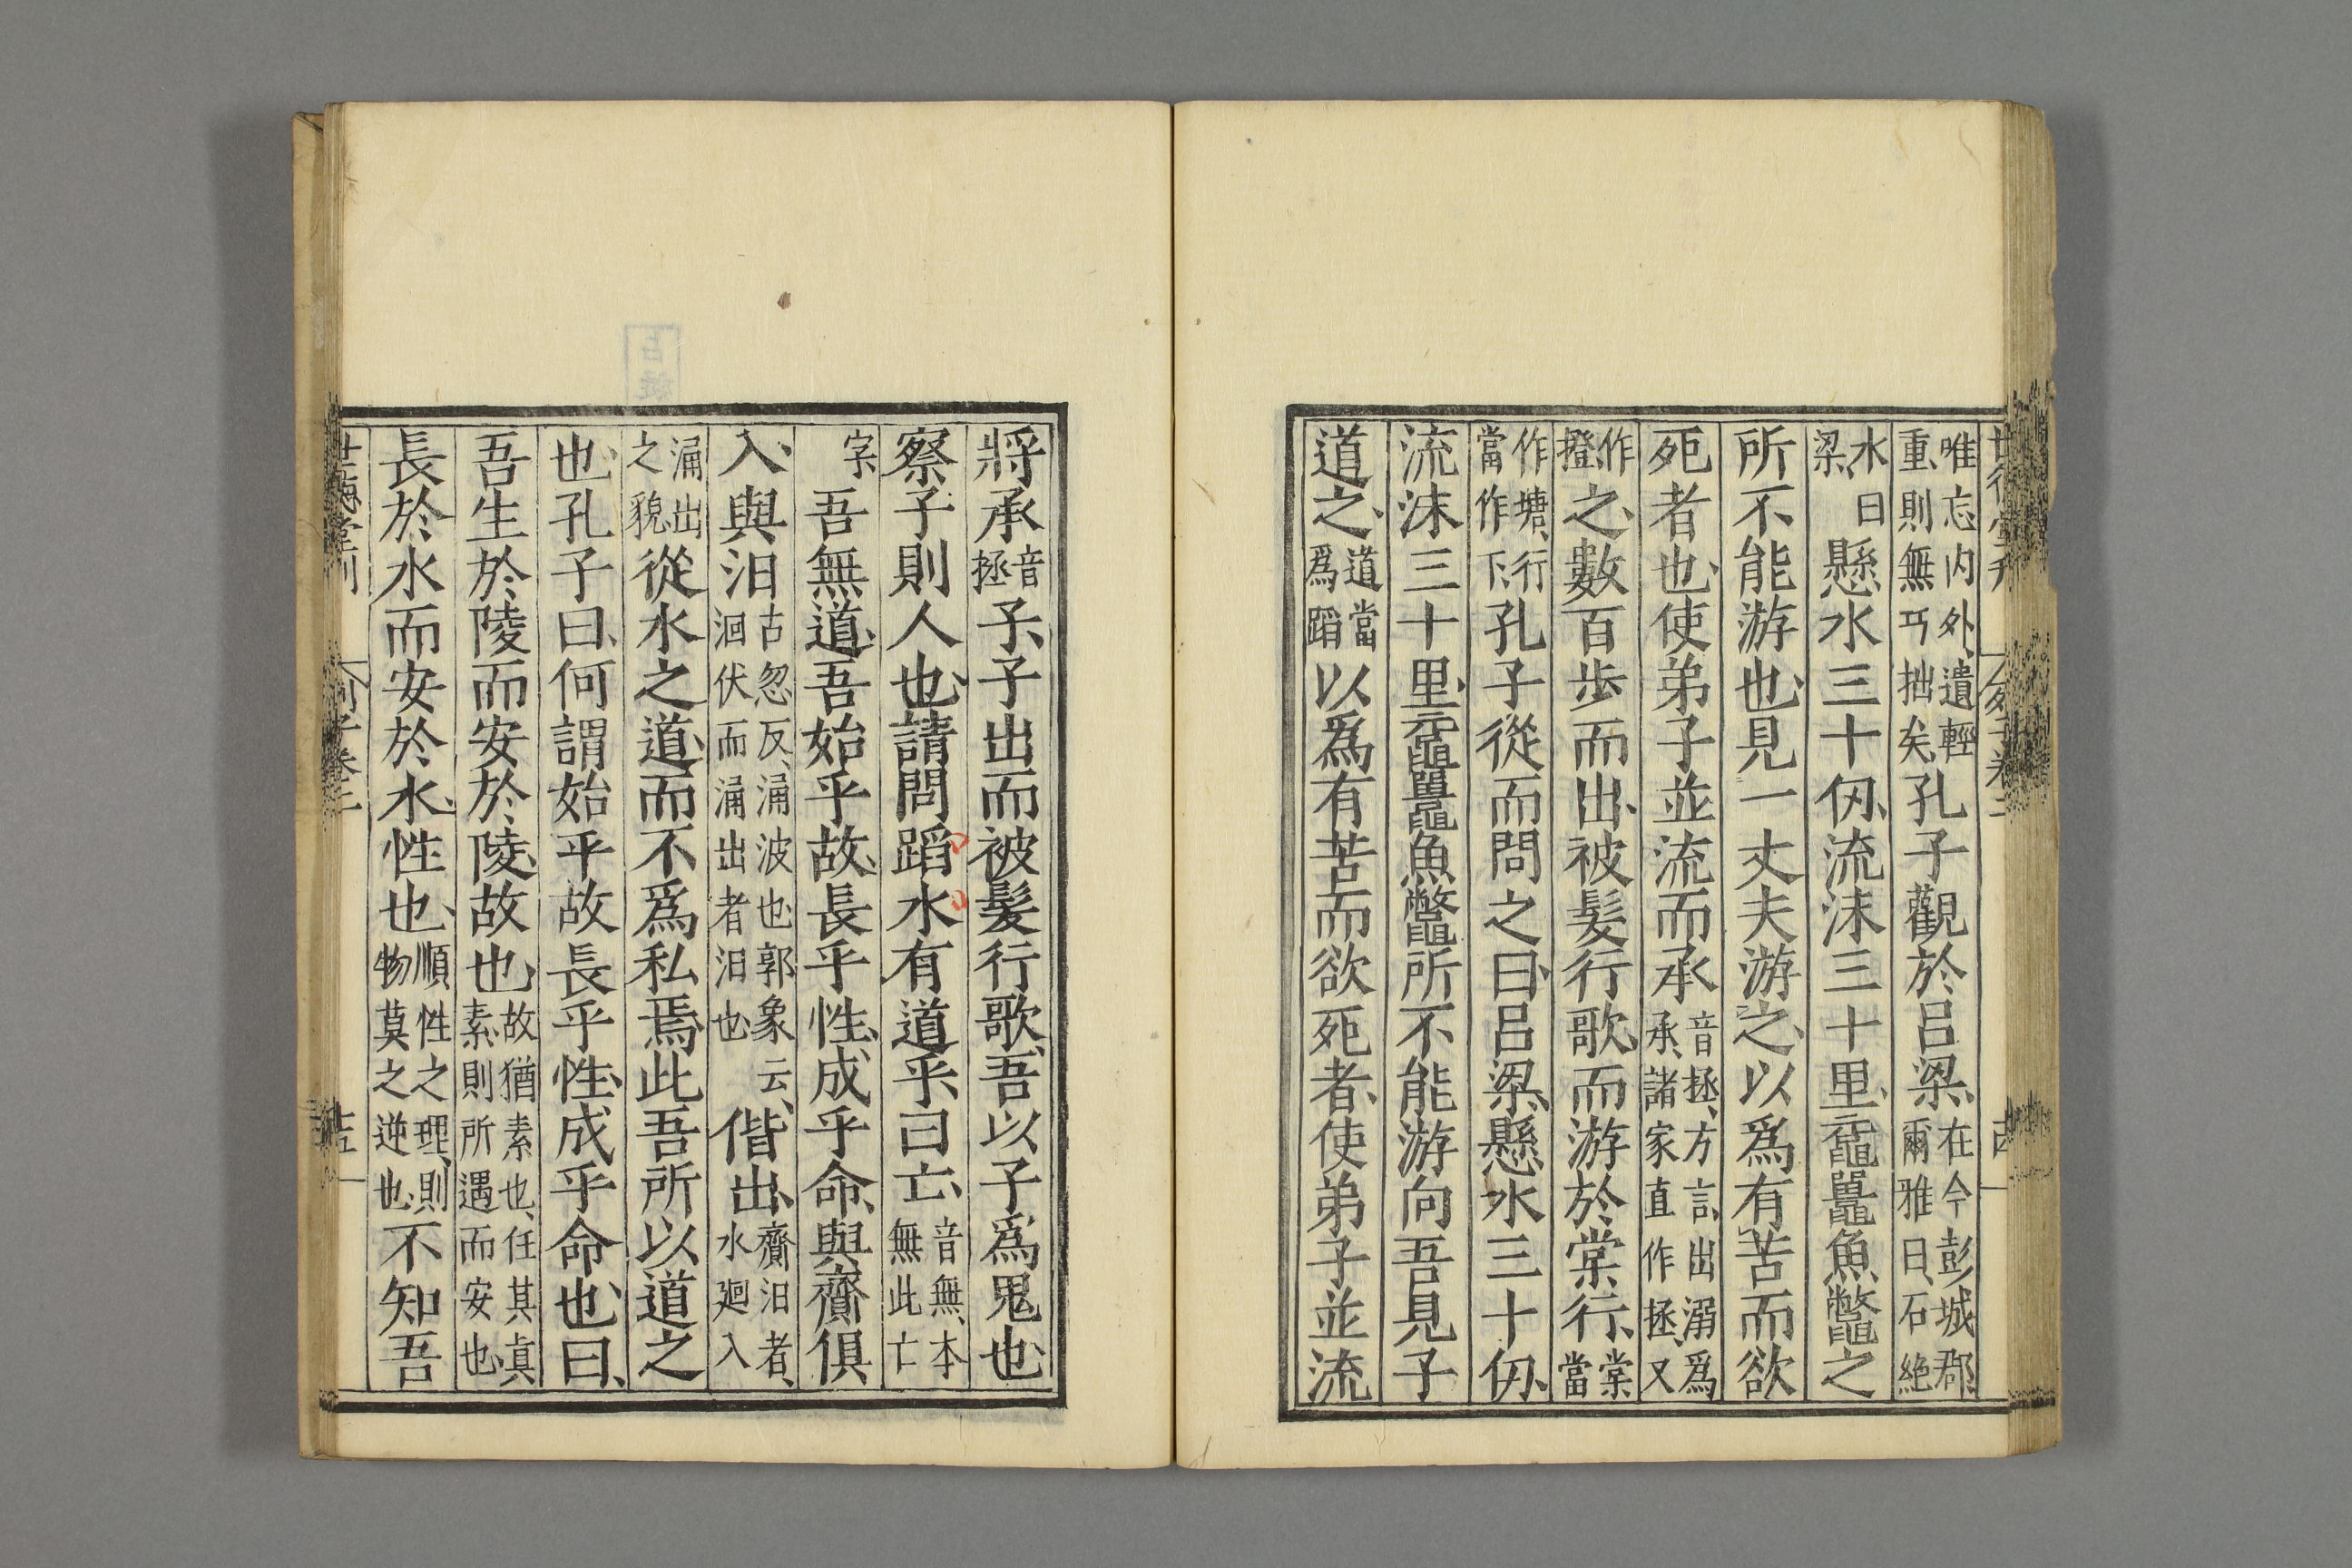 唯忘内外、遺輕重、則無巧拙矣、孔子觀於呂梁、在今彭城郡、爾雅曰、石絶
水曰梁、懸水三十仞、流沫三十里、黿鼉魚鼈之
所不能游也、見一丈夫游之、以爲有苦而欲
死者也、使弟子並流而承音拯、方言、出溺爲承、諸家直作拯、又
作撜、之、數百步而出、被髮行歌、而游於棠行、棠當
作塘、行當作下、孔子從而問之曰、呂梁、懸水三十仞、
流沫三十里、黿鼉魚鼈所不能游向吾見子
道之、道當爲蹈以爲有苦而欲死者、使弟子並流
將承音拯子、子出而被髮行歌、吾以子爲鬼也、
察子則人也、請問蹈水有道乎、曰亡、音無、本無此亡
字吾無道、吾始乎故、長乎性、成乎命、與齎俱
入、與汨古忽反、涌波也、郭象云、洄伏而涌出者汨也、偕出、齎汨者、水廻入
涌出之貌從水之道、而不爲私焉、此吾所以道之
也、孔子曰、何謂始乎故、長乎性、成乎命也、曰、
吾生於陵而安於陵、故也、故猶素也、任其真素、則所遇而安也、
長於水而安於水、性也、順性之理、則物莫之逆也、不知吾
世德堂刊 列子卷二 十五